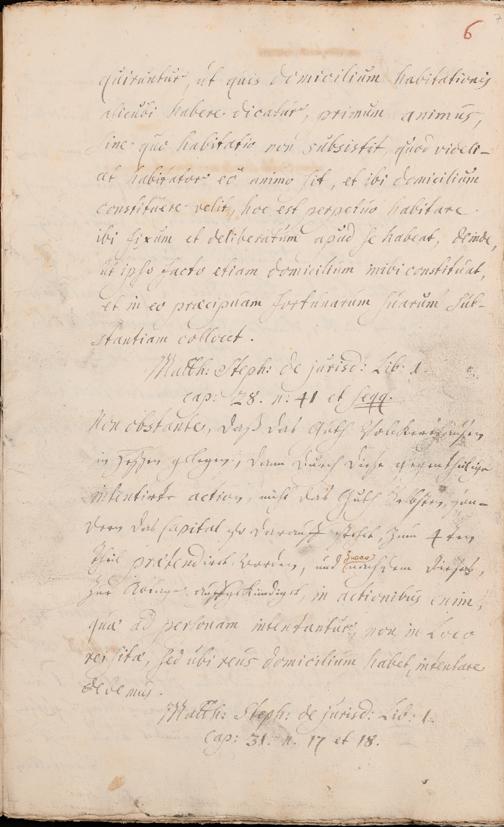 6
quiruntur, ut quis domicilium habitationis
alicubi habere dicatur, primum animus,
sine quo habitatio non subsistit, quod videli-
at habitator eo animo sit, et ibi domicilium
constituere velit, hoc est perpetuo habitare
ibi fixum et deliberatum apud se habeat, deinde,
ut ipso facto etiam domicilium inibi constituat,
et in eo præcipuam fortunarum suarum sub-
stantiam collocet.
Matth: Steph: de jurisd: Lib: 1.
cap: 28. n: 41 et seqq.
Non obstante, daß das Guth
in Hessen gelegen, dann durch diese gegentheilige
intentirte action, nicht das Guth selbsten, son-
dern das Capital so darauff stehet, zum 4ten
theil prætendiret worden, und zwar nach dem
zur, in actionibus enim,
quæ ad personam intentantur, non in Loco
rei sitæ, sed ubi reus domicilium habet, intentare
debemus.
Matth: Steph: de jurisd: Lib: 1.
cap: 31. n. 17 et 18.